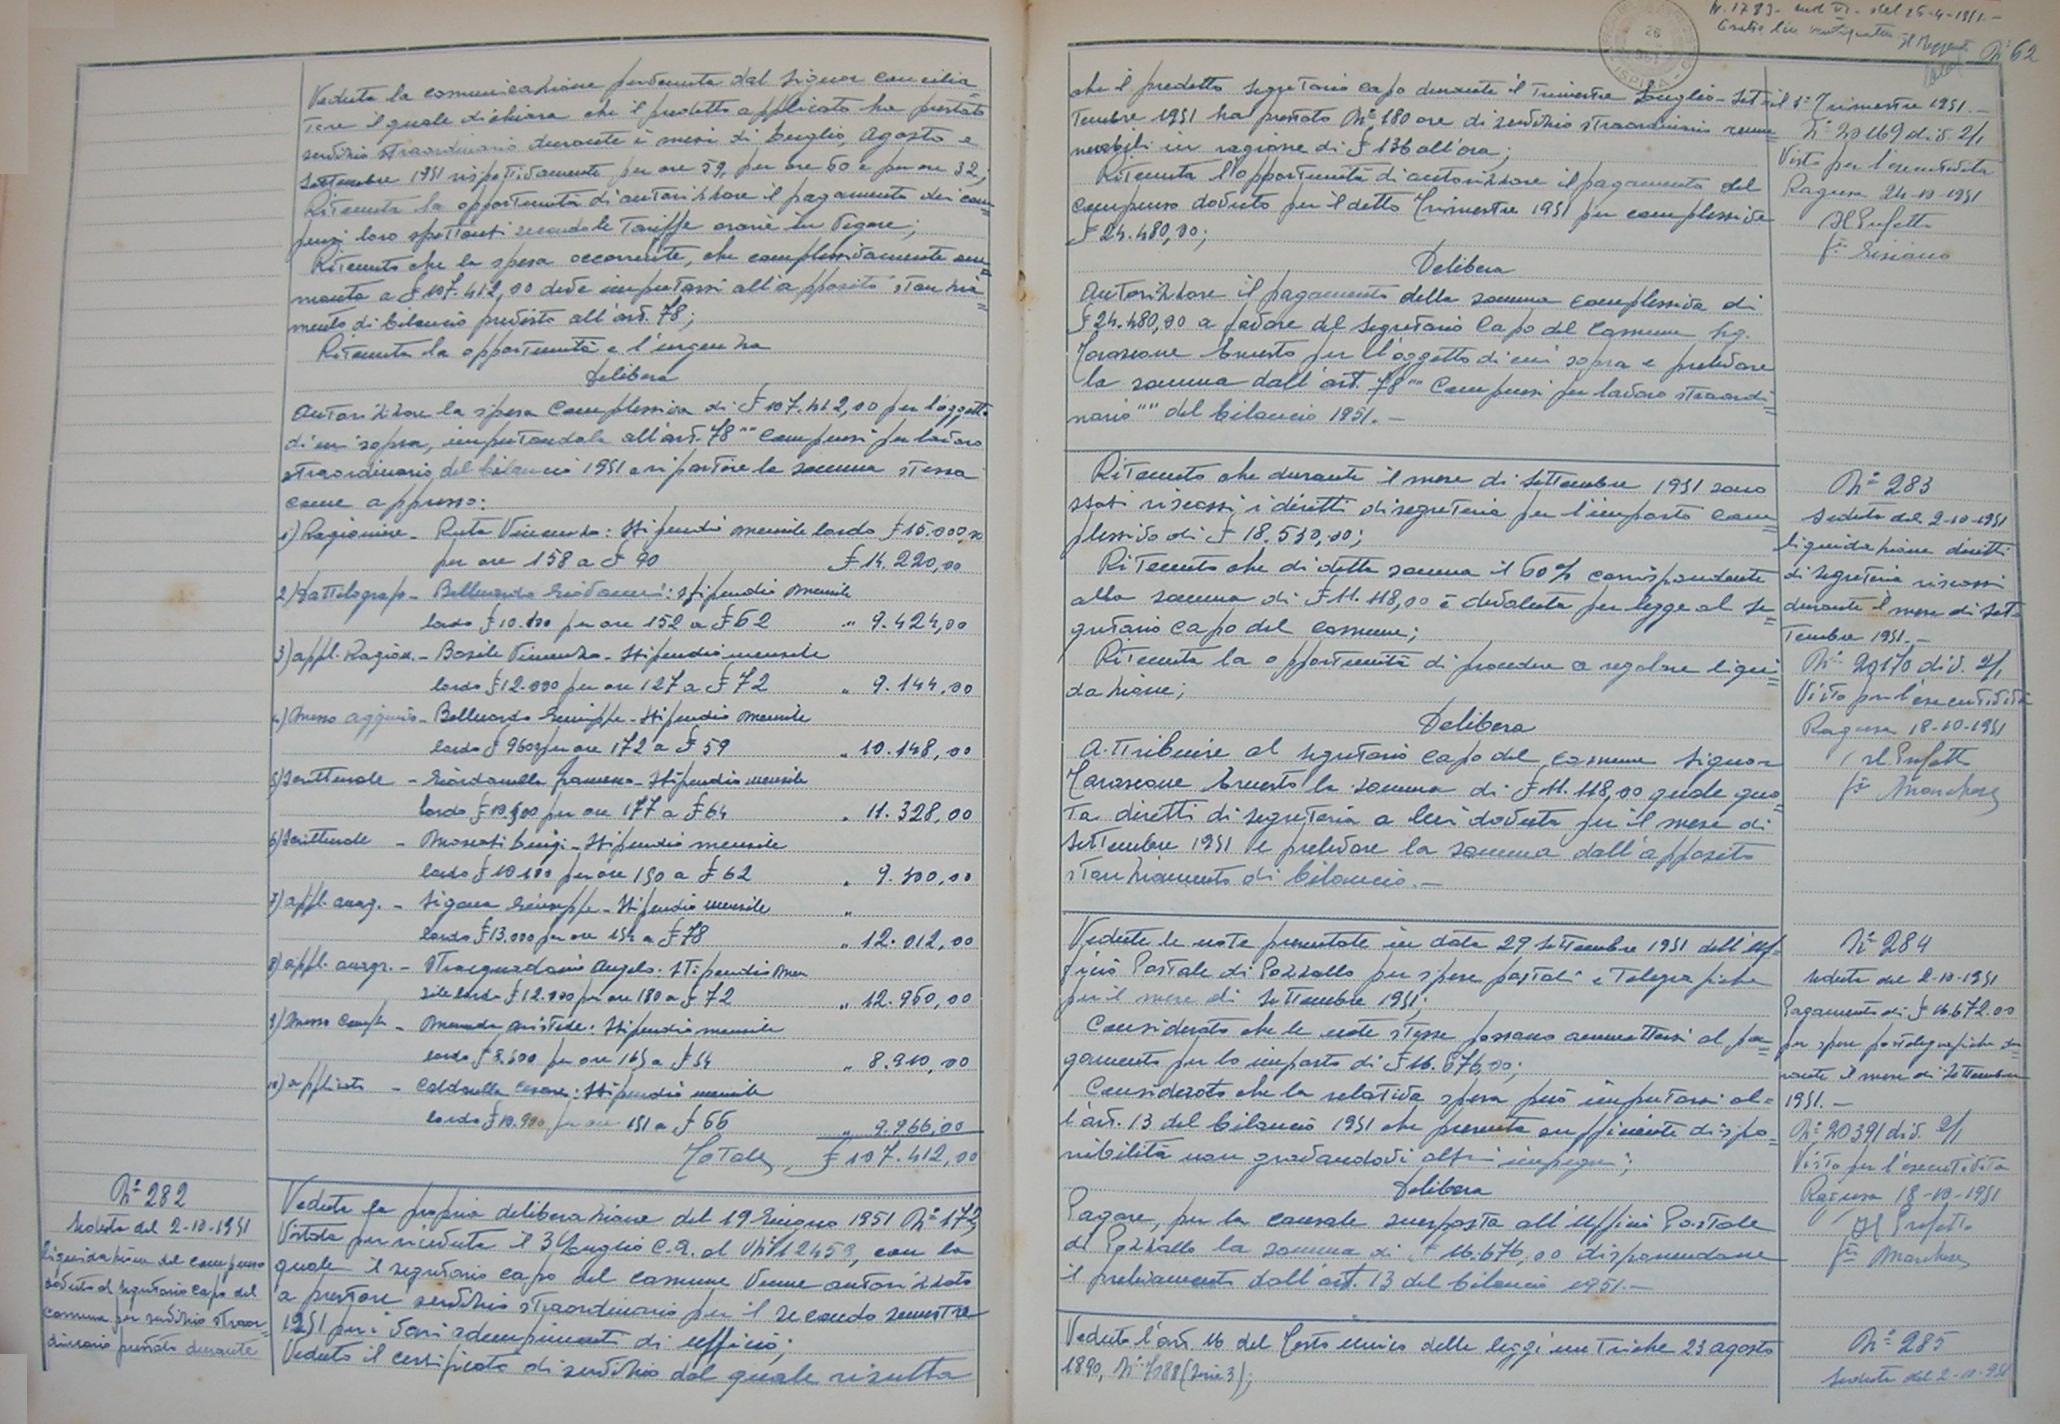 Veduta la comunicazione pervenuta dal Signor Concilia=
tore il quale dichiara che il predetto applicato ha prestato
servizio straordinario durante i mesi di luglio, agosto e
Settembre 1951 rispettivamente per ore 59, per ore 60 e per ore 32;
Ritenuta la opportunità di autorizzare il pagamento dei com=
pensi loro spettanti secondo le tariffe orarie in vigore;
Ritenuto che la spesa occorrente, che complessivamente am=
monta a £ 107.412,00 deve imputarsi all'apposito stanzia=
mento di bilancio previsto all'art. 78;
Ritenuta la opportunità e l'urgenza
Delibera
Autorizzare la spesa complessiva di £ 107.412,00 per l'oggetto
di cui sopra, imputandola all'art. 78 "" Compensi per lavoro
straordinario del bilancio 1951 e ripartire la somma stessa
come appresso:
1) Ragioniere - Ruta Vincenzo: Stipendio mensile lordo £ 15.000,00
per ore 158 a £ 90 £ 14.220,00
2) Dattilografo - Belluardo Giovanni: Stipendio mensile
lordo £ 10.100 per ore 152 a £ 62 " 9.424,00
3) appl. Ragion. - Basile Vincenzo - Stipendio mensile
lordo £ 12.000 per ore 127 a £ 72 " 9.144,00
4) Messo aggiunto - Belluardo Giuseppe - Stipendio mensile
lordo £ 9600 per ore 172 a £ 59 " 10.148,00
5) Scritturale - Giordanella Francesco - Stipendio mensile
lordo £ 10.500 per ore 177 a £ 64 " 11.328,00
6) Scritturale - Moscati Luigi - Stipendio mensile
lordo £ 10.100 per ore 150 a £ 62 " 9.300,00
7) appl. anag. - Sigona Giuseppe - Stipendio mensile "
lordo £ 13.000 per ore 154 a £ 78 " 12.012,00
8) appl. anagr. - Stracquadanio Angelo - Stipendio men
sile lordo £ 12.000 per ore 180 a £ 72 " 12.960,00
9) Messo - Aristide: Stipendio mensile
lordo £ 8.500 per ore 165 a £ 54 " 8.910,00
10) applicato - Caldarella Cesare: Stipendio mensile
lordo £ 10.900 per ore 151 a £ 66 " 9.966,00
Totale £ 107.412,00
N° 282
Seduta del 2-10-1951
Liquidazione del compenso
dovuto al Segretario Capo del
comune per servizio straor=
dinario prestato durante
Veduta la propria deliberazione del 19 Giugno 1951 N° 172,
Vistata per ricevuta il 3 Luglio C.A. al N° 12453, con la
quale il segretario capo del comune venne autorizzato
a prestare servizio straordinario per il secondo semestre
1951 per i vari adempimenti di ufficio;
Veduto il certificato di servizio dal quale risulta
N. 1783 - del 25-4-1951 -
Il Reggente
N° 62
26
ISPICA
che il predetto Segretario capo durante il Trimestre Luglio - Set=
tembre 1951 ha prestato N° 180 ore di servizio straordinario remu=
nerabili in ragione di £ 136 all'ora;
Ritenuta l'opportunità di autorizzare il pagamento del
compenso dovuto per il detto Trimestre 1951 per complessive
£ 24.480,00;
Delibera
Autorizzare il pagamento della somma complessiva di
£ 24.480,00 a favore del Segretario Capo del Comune Sig.
Tarascone Ernesto per l'oggetto di cui sopra e prelevare
la somma dall'art. 78 "" Compensi per lavoro straordi=
nario "" del bilancio 1951. -
il 3° Trimestre 1951. -
N° 20169 div. 2/1
Visto per l'esecutività
Ragusa 24-10-1951
Il Prefetto
Ritenuto che durante il mese di Settembre 1951 sono
stati riscossi i diritti di segreteria per l'importo com=
plessivo di £ 18.530,00;
Ritenuto che di detta somma il 60% corrispondente
alla somma di £ 11.118,00 è devoluta per legge al Se=
gretario capo del comune;
Ritenuta la opportunità di procedere a regolare liqui=
dazione;
Delibera
Attribuire al segretario capo del comune Signor
Tarascone Ernesto la somma di £ 11.118,00 quale quo=
ta diritti di segreteria a lui dovuta per il mese di
Settembre 1951 e prelevare la somma dall'apposito
stanziamento di bilancio. -
N° 283
Seduta del 2-10-1951
liquidazione diritti
di segreteria riscossi
durante il mese di Set=
tembre 1951. -
N° 20170 div. 2/1
Visto per l'esecutività
Ragusa 18-10-1951
Il Prefetto
Vedute le note presentate in data 29 Settembre 1951 dall'Uf=
ficio Postale di Pozzallo per spese postali e telegrafiche
per il mese di Settembre 1951;
Considerato che le note stesse possano ammettersi al pa=
gamento per lo importo di £ 16.676,00;
Considerato che la relativa spesa può imputarsi al=
l'art. 13 del bilancio 1951 che presenta sufficiente dispo=
nibilità non gravandovi altri impegni;
Delibera
Pagare, per la causale suesposta all'Ufficio Postale
di Pozzallo la somma di £ 16.676,00 disponendone
il prelevamento dall'art. 13 del bilancio 1951. -
N° 284
Seduta del 2-10-1951
Pagamento di £ 16.672.00
per spese postelegrafiche du=
rante il mese di Settembre
1951. -
N° 20391 div. 2/1
Visto per l'esecutività
Ragusa 18-10-1951
Il Prefetto
Veduto l'art. 16 del Testo Unico delle leggi metriche 23 agosto
1890, N° 7088 (Serie 3);
N° 285
Seduta del 2-10-951